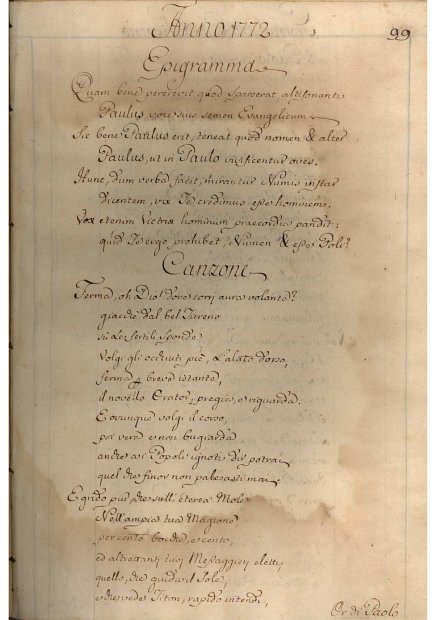 Anno 1772
99
Epigramma
Quam bene percrevit quod sparserat altisonanti
Paulus voce suis semen Evangelicum
Sic bene Paulus erit, teneat quod nomen & alter
Paulus, ut in Paulo vivificentur oves.
Hunc, dum verba facit, mirantur Numis instar
dicentem, vix Te credimus esse hominem.
Vox etenim Victrix hominum praecordia pandit:
quid Te ergo prohibet, Numen & esse Poli?
Canzone
Ferma, oh Dio! dove corri aura volante?
giacchè dal bel Tirreno
su le fertili sponde
Volgi gli occhiuti piè, l'alato dorso,
ferma breve istante,
il novello e riguarda.
E ovunque volgi il corso,
poi vera e non bugiarda
anche ai Popoli ignoti dir potrai
quel che finor non palesasti mai.
E grido più, che sull'eterea Mole
Nell'ampia tua Magione
per cento bocche, e cento,
ed altrettanti tuoi Messaggieri eletti,
quello, che guida il Sole,
e che vede Titon, rapido intendi,
Or di Paolo